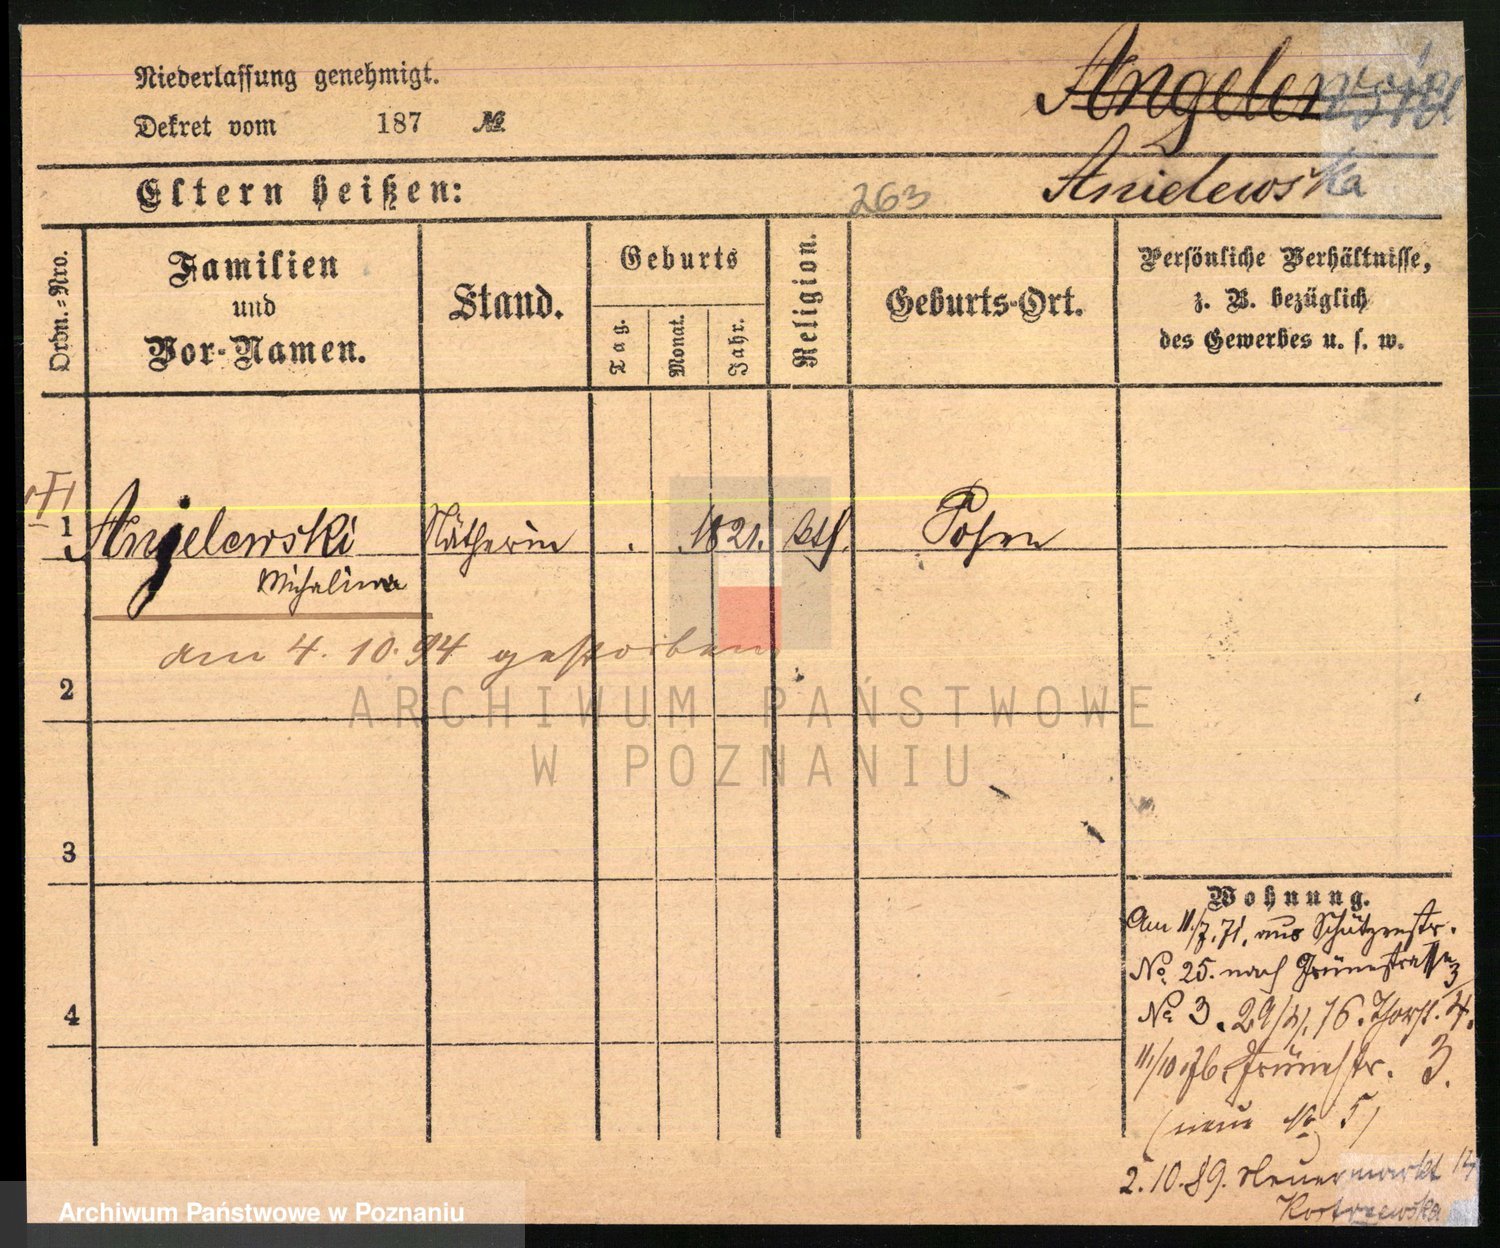 Niederlassung genehmigt.
Dekret vom 187 №
Angelewska
Anielewska
Eltern heißen:
263
Ordn.=Nro.
Familien
und
Vor-Namen.
Stand.
Geburts
Tag.
Monat.
Jahr.
Religion.
Geburts-Ort.
Persönliche Verhältnisse,
z. B. bezüglich
des Gewerbes u. s. w.
1 Anjelewski Nätherin 1821. kth. Posen
Michalina
am 4. 10. 94 gestorben
2
3
4
Wohnung.
Am 11/7. 71. aus Schützenstr.
No. 25. nach Grünestrasse
No 3. 29/4. 76. Thorst. 4.
11/10 76. Grünestr. 3.
(neue No 5)
2. 10. 89. Neuermarkt 14
Kostrzewska
ARCHIWUM PAŃSTWOWE
W POZNANIU
Archiwum Państwowe w Poznaniu